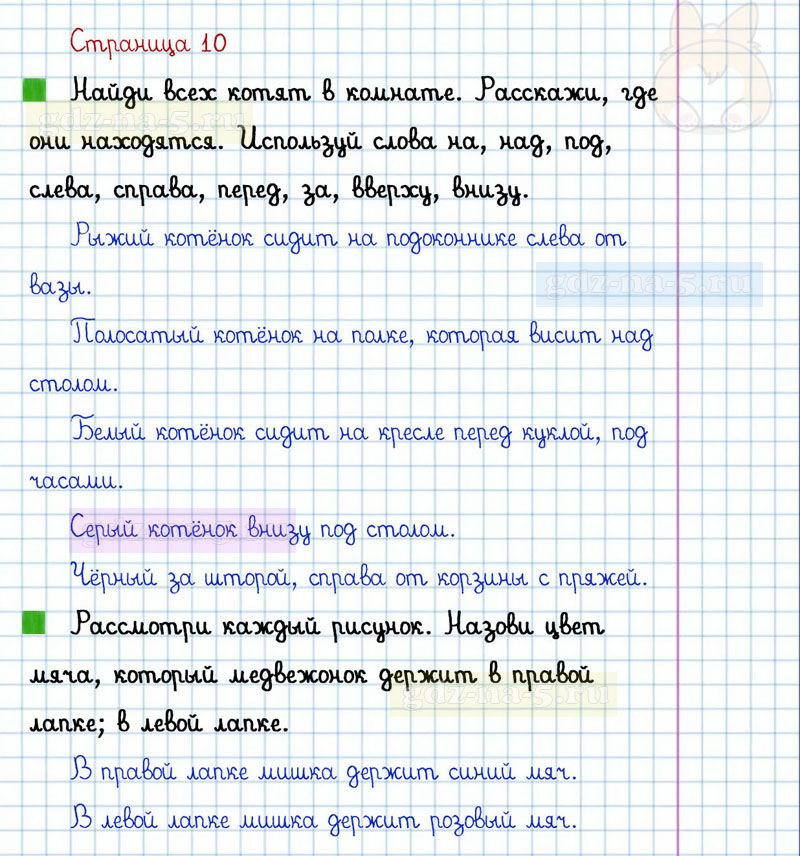 Страница 10
Найди всех котят в комнате. Расскажи, где
gdz-na-5.ru
они находятся. Используй слова на, над, под,
слева, справа, перед, за, вверху, внизу.
Рыжий котёнок сидит на подоконнике слева от
gdz-na-5.ru
вазы.
Полосатый котёнок на полке, которая висит над
столом.
Белый котёнок сидит на кресле перед куклой, под
часами.
Серый котёнок внизу под столом.
Чёрный за шторой, справа от корзины с пряжей.
Рассмотри каждый рисунок. Назови цвет
мяча, который медвежонок держит в правой
gdz-na-5.ru
лапке; в левой лапке.
В правой лапке мишка держит синий мяч.
В левой лапке мишка держит розовый мяч.